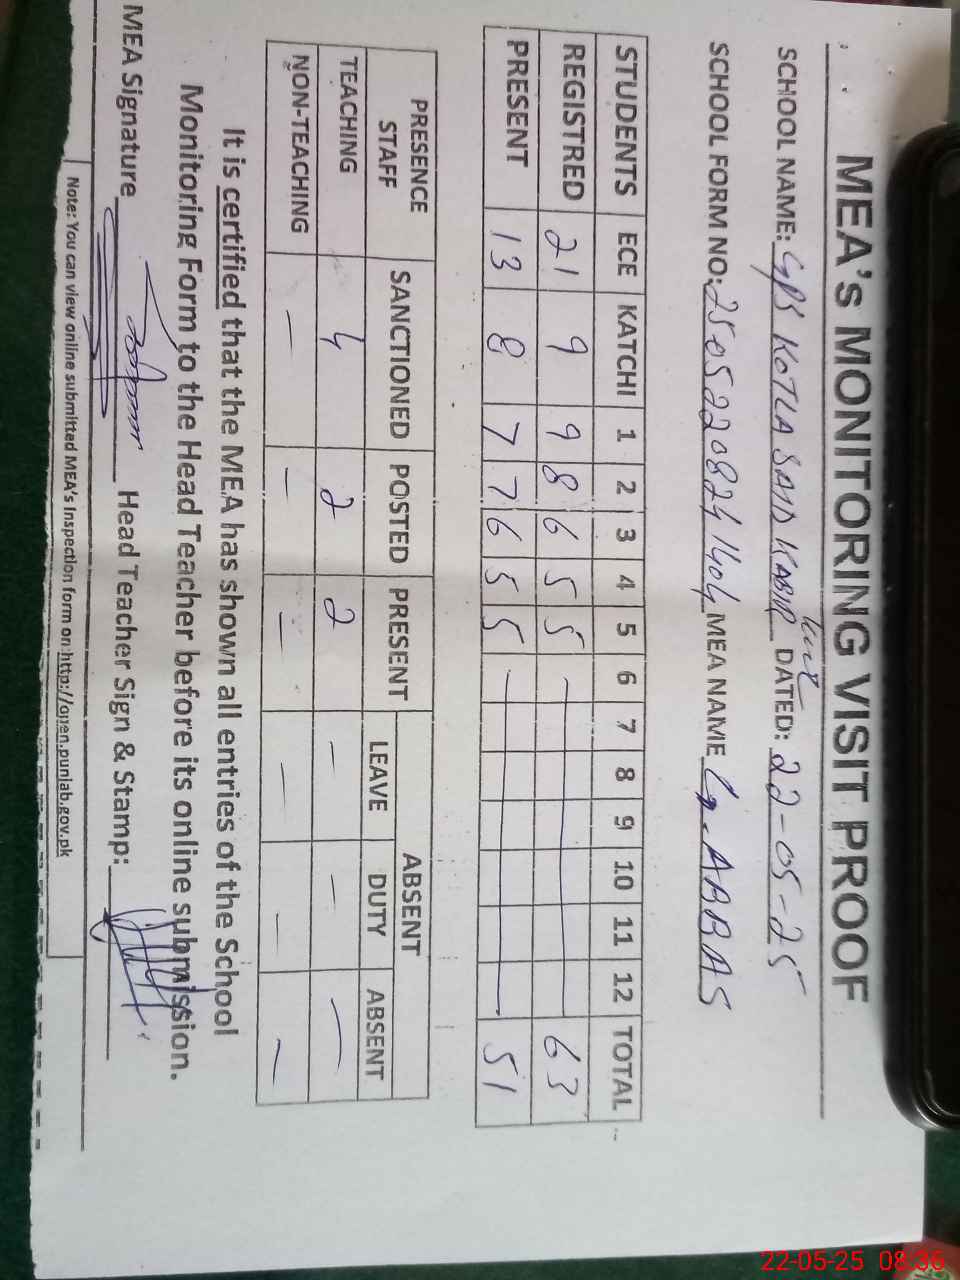 MEA's MONITORING VISIT PROOF
SCHOOL NAME: GPS KOTLA SAID KABIR DATED: 22-05-25
SCHOOL FORM NO: 25052208241404 MEA NAME G. ABBAS
STUDENTS ECE KATCHI 1 2 3 4 5 6 7 8 9 10 11 12 TOTAL
REGISTRED 21 9 9 8 6 5 5 63
PRESENT 13 8 7 7 6 5 5 51
PRESENCE STAFF SANCTIONED POSTED PRESENT ABSENT
LEAVE DUTY ABSENT
TEACHING 4 2 2 — — —
NON-TEACHING — — — — — —
It is certified that the MEA has shown all entries of the School
Monitoring Form to the Head Teacher before its online submission.
MEA Signature Head Teacher Sign & Stamp:
Note: You can view online submitted MEA's Inspection form on http://open.punjab.gov.pk
22-05-25 08:36